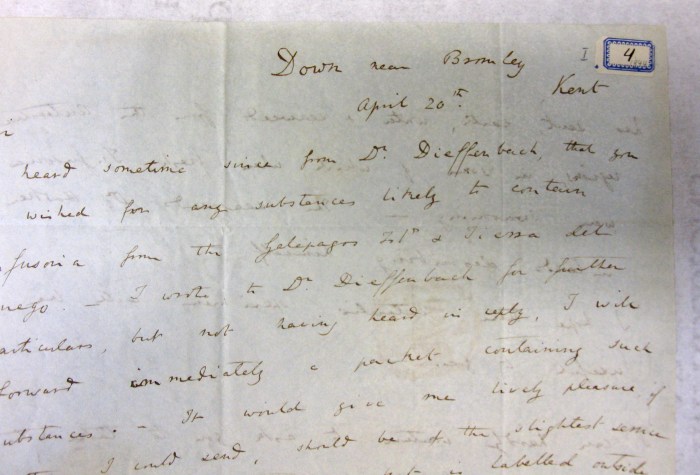 I. 4
Down near Bromley
Kent
April 20th.
heard sometime since from Dr. Dieffenbach, that you
wished for any substances likely to contain
fusoria from the Galapagos Isds & Tierra del
uego. — I wrote to Dr Dieffenbach for further
articulars, but not having heard in reply, I will
forward immediately a packet containing such
ubstances. — It would give me lively pleasure if
I could send, should be of the slightest service
labelled outside